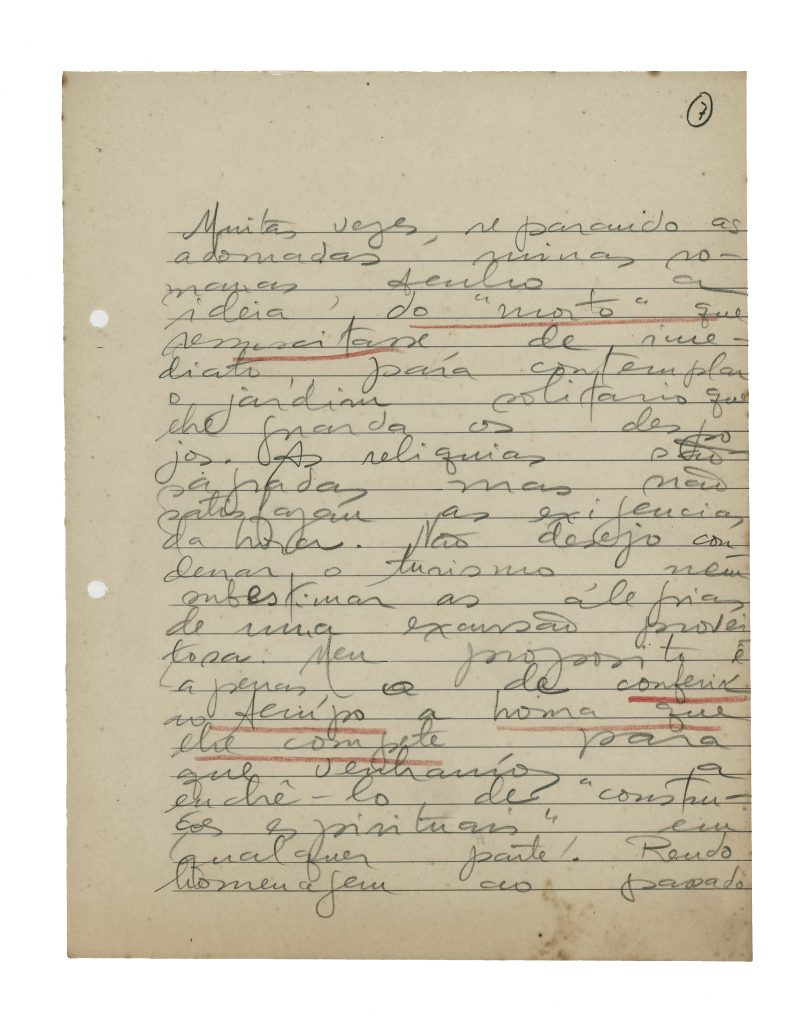 7
Muitas vezes, reparando as
adornadas ruinas ro-
manas tenho a
ideia, do "morto" que
ressuscitasse de ime-
diato, pará contemplar
o jardim solitario que
lhe guarda os despo
jos. As reliquias são
sagradas mas não
satisfazem as exigencias
da hora. Não desejo con
denar, o turismo nem
subestimar as álegrias
de uma excursão provei
tosa. Meu proposito é
apenas o de conferir
no tempo a honra que
lhe compete para
que venhamos a
enchê-lo de "constru-
ções espirituais" em
qualquer parte. Rendo
homenagem ao passado